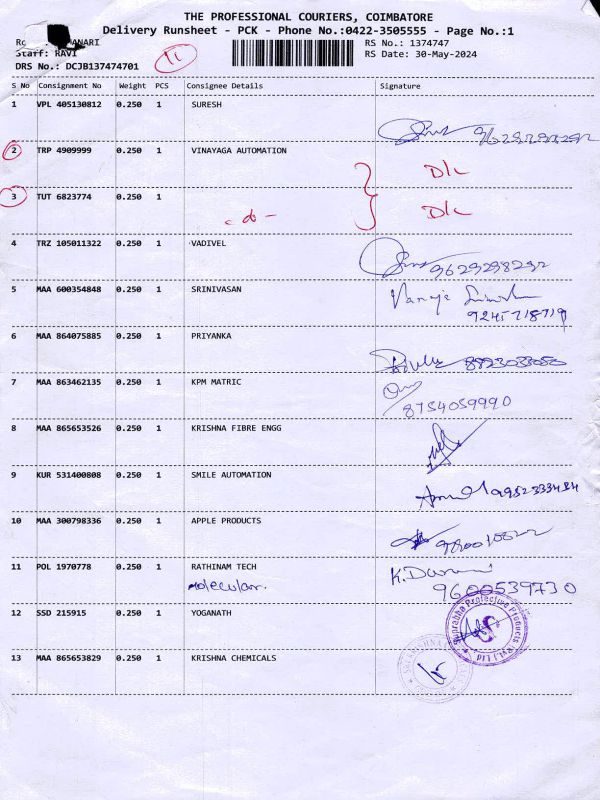 THE PROFESSIONAL COURIERS, COIMBATORE
Delivery Runsheet - PCK - Phone No.:0422-3505555 - Page No.:1
ANARI
RS No.: 1374747
Staff: RAVI
RS Date: 30-May-2024
DRS No.: DCJB137474701
11
S No Consignment No Weight PCS Consignee Details Signature
1 VPL 405130812 0.250 1 SURESH
9629298292
2 TRP 4909999 0.250 1 VINAYAGA AUTOMATION D/L
3 TUT 6823774 0.250 1 D/L
4 TRZ 105011322 0.250 1 VADIVEL
9629298292
5 MAA 600354848 0.250 1 SRINIVASAN
9245718719
6 MAA 864075885 0.250 1 PRIYANKA
7 MAA 863462135 0.250 1 KPM MATRIC
8754059990
8 MAA 865653526 0.250 1 KRISHNA FIBRE ENGG
9 KUR 531400808 0.250 1 SMILE AUTOMATION
10 MAA 300798336 0.250 1 APPLE PRODUCTS
11 POL 1970778 0.250 1 RATHINAM TECH
molecular. 9600539730
12 SSD 215915 0.250 1 YOGANATH
Protective Products
13 MAA 865653829 0.250 1 KRISHNA CHEMICALS